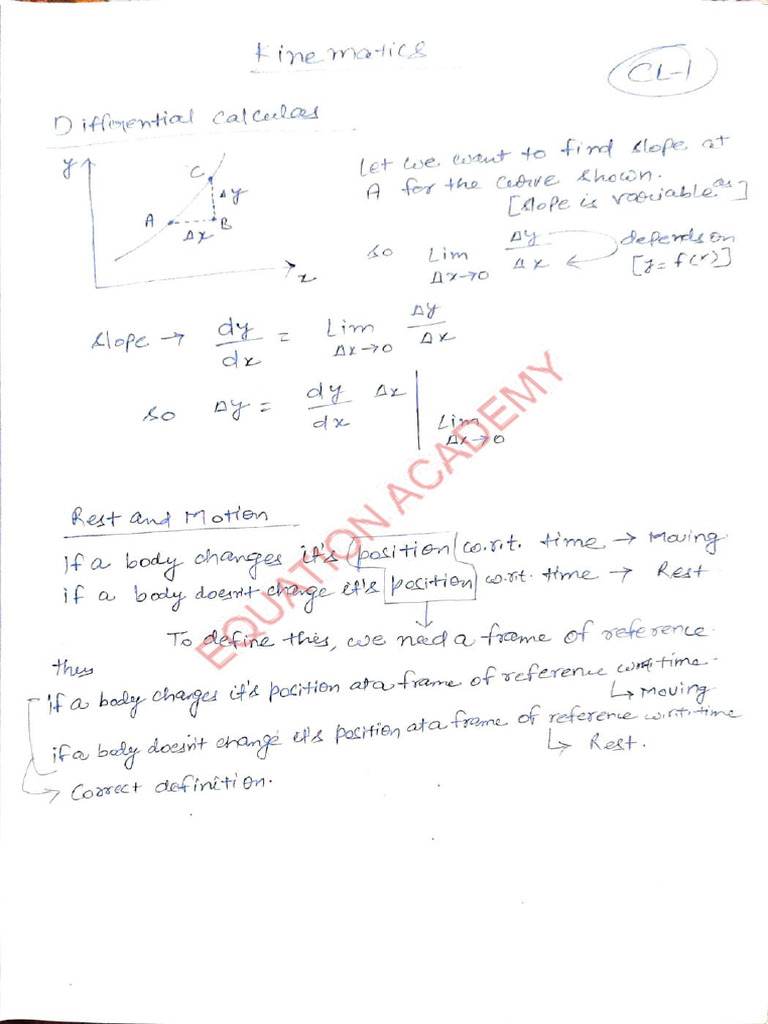 Kinematics
CL-1
Differential calculas
y
C
Δy
A
B
Δx
x
Let we want to find slope at
A for the curve shown.
[slope is variable as]
so Lim Δx→0 Δy/Δx depends on [y=f(x)]
slope → dy/dx = Lim Δx→0 Δy/Δx
so Δy = dy/dx Δx | Lim Δx→0
EQUATION ACADEMY
Rest and Motion
If a body changes it's position w.r.t. time → Moving
if a body doesn't change it's position w.r.t. time → Rest
To define this, we need a frame of reference.
thus
if a body changes it's position at a frame of reference w.r.t time.
↳ Moving
if a body doesn't change it's position at a frame of reference w.r.t. time
↳ Rest.
→ Correct definition.